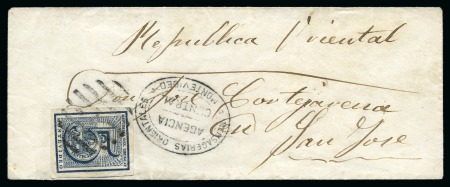 Republica Oriental
Don José Cortejarena
en
San José
MENSAGERIAS ORIENTALES
AGENCIA
CENTRAL
MONTEVIDEO